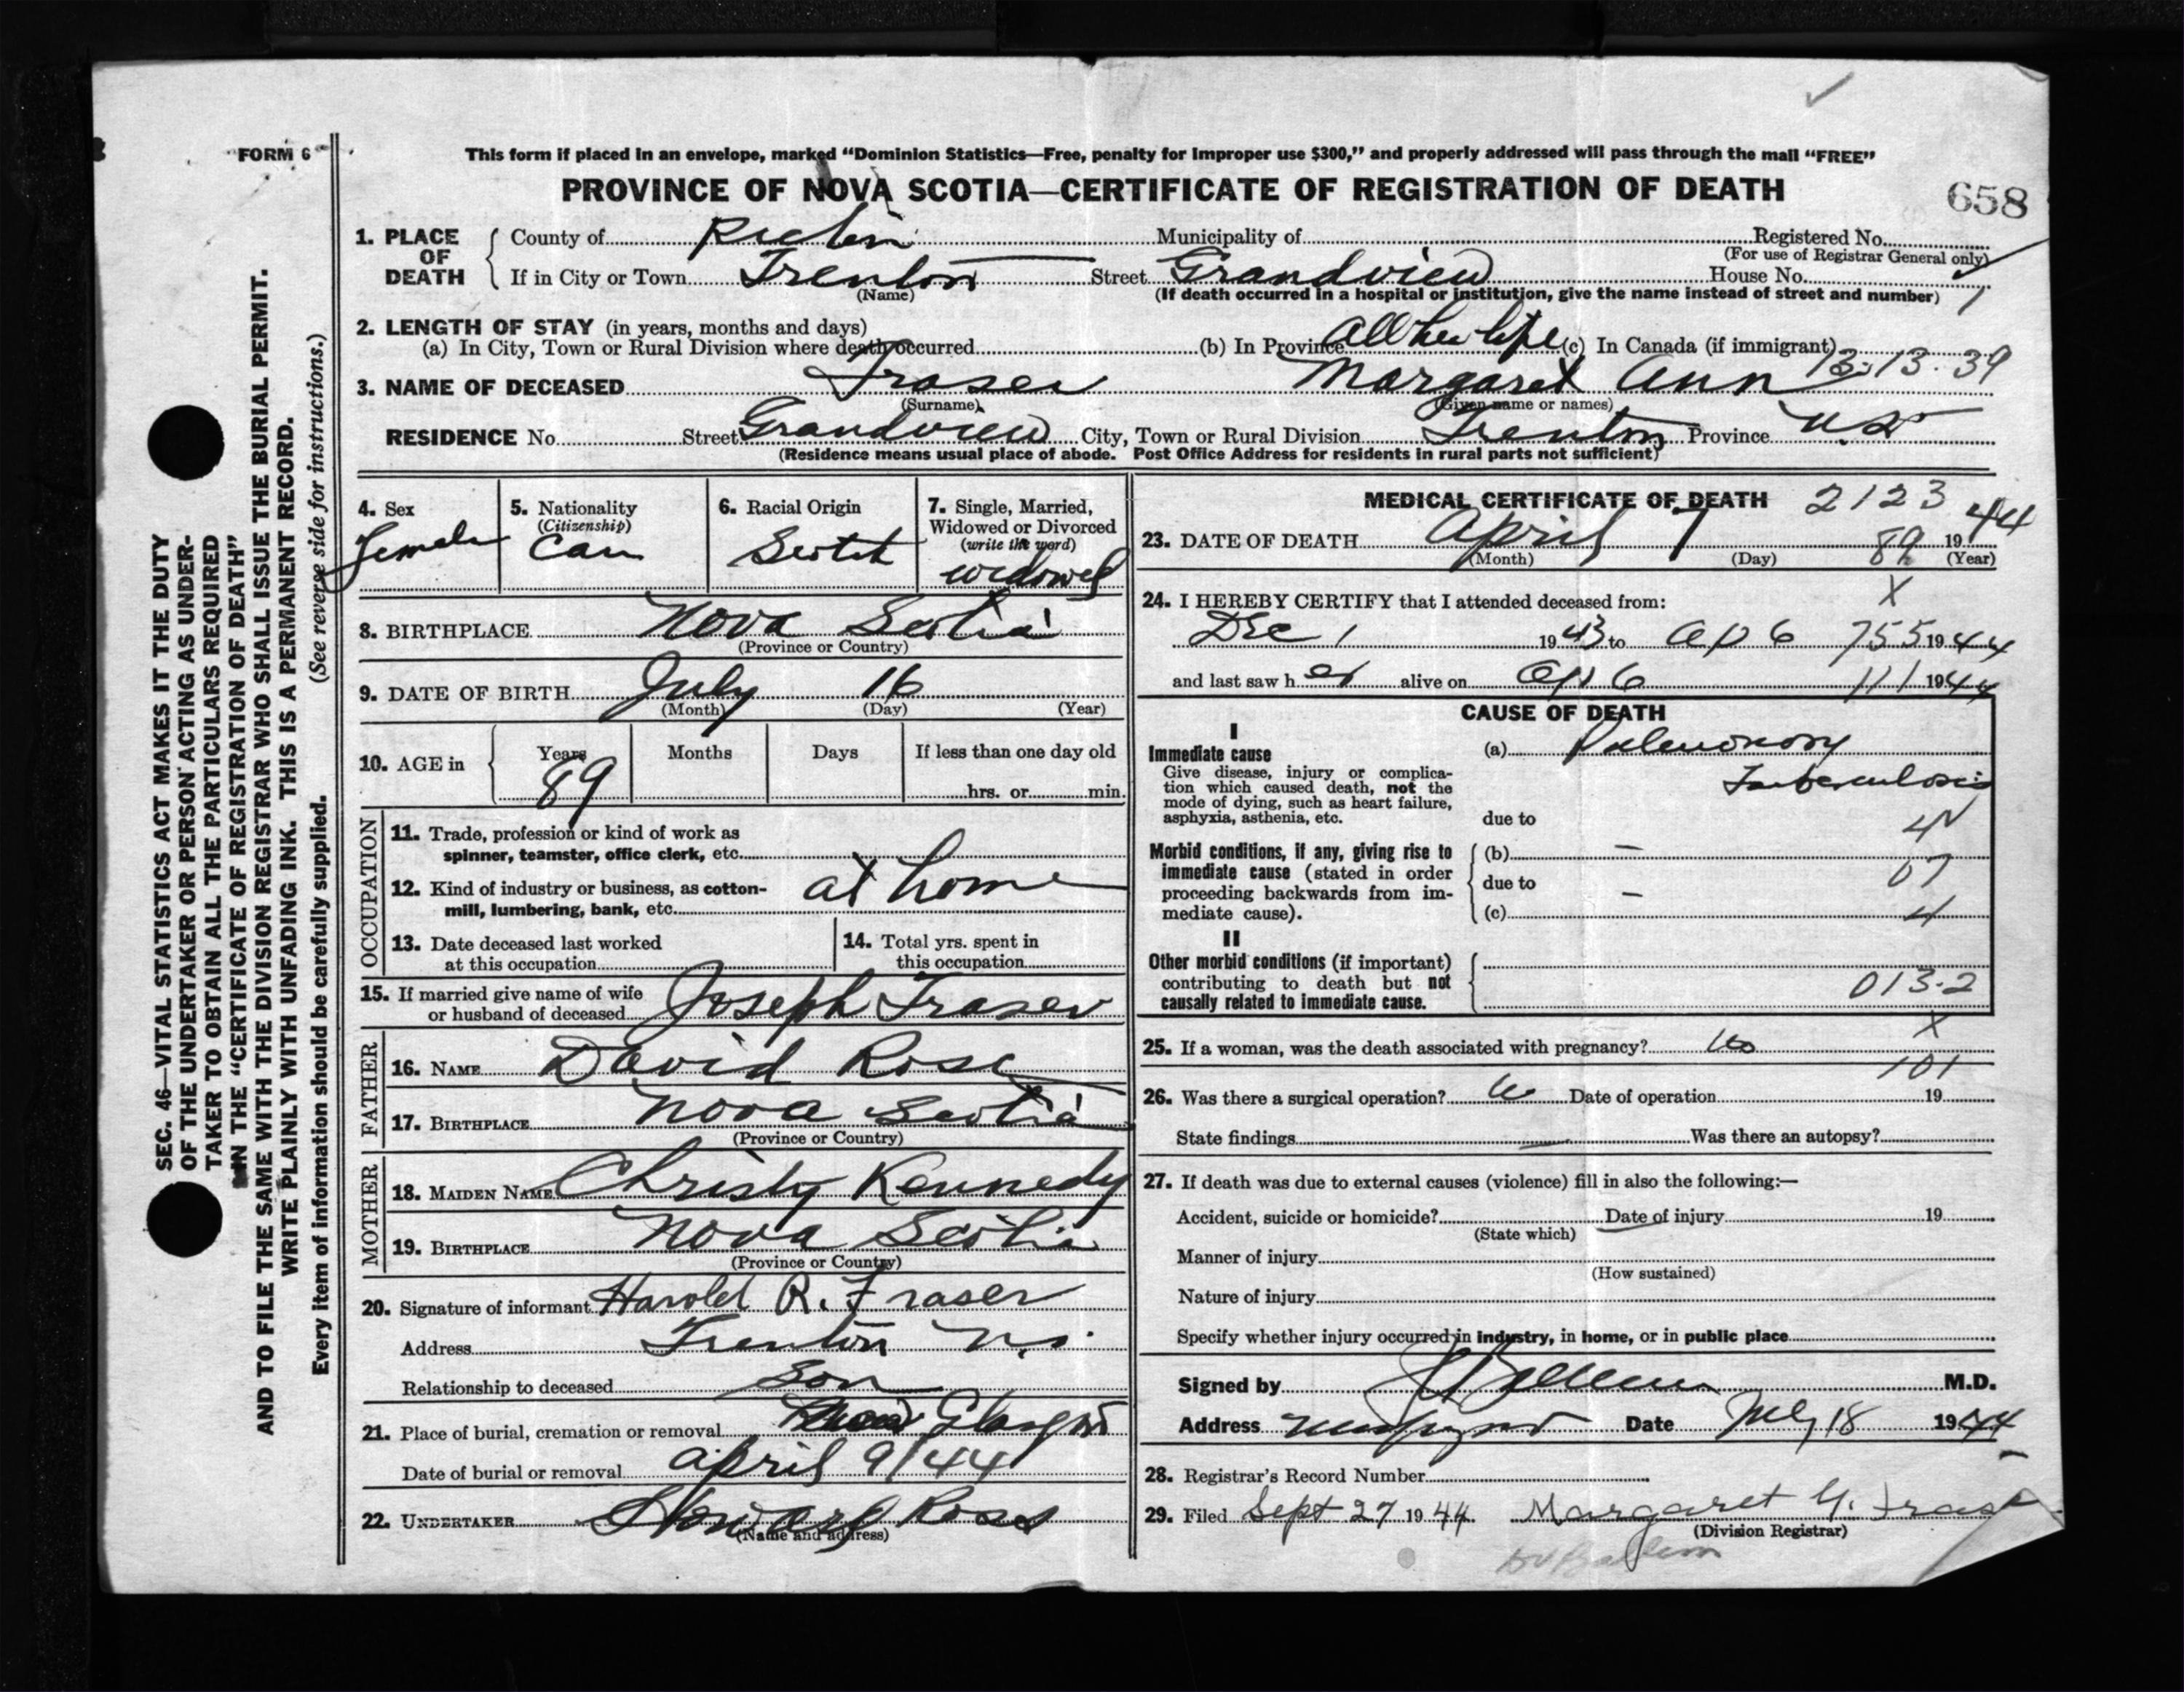 FORM 6
This form if placed in an envelope, marked “Dominion Statistics—Free, penalty for improper use $300,” and properly addressed will pass through the mail “FREE”
PROVINCE OF NOVA SCOTIA—CERTIFICATE OF REGISTRATION OF DEATH
658
1. PLACE OF DEATH
County of Pictou Municipality of Registered No.
(For use of Registrar General only)
If in City or Town Trenton Street Grandview House No.
(Name)
(If death occurred in a hospital or institution, give the name instead of street and number) 1
2. LENGTH OF STAY (in years, months and days)
(a) In City, Town or Rural Division where death occurred (b) In Province All her life (c) In Canada (if immigrant)
13.13.39
3. NAME OF DECEASED Fraser Margaret Ann
(Surname) (Given name or names)
RESIDENCE No. Street Grandview City, Town or Rural Division Trenton Province N.S.
(Residence means usual place of abode. Post Office Address for residents in rural parts not sufficient)
4. Sex
Female
5. Nationality
(Citizenship)
Can
6. Racial Origin
Scotch
7. Single, Married,
Widowed or Divorced
(write the word)
Widowed
8. BIRTHPLACE Nova Scotia
(Province or Country)
9. DATE OF BIRTH July 16
(Month) (Day) (Year)
10. AGE in
Years Months Days If less than one day old
89 hrs. or min.
OCCUPATION
11. Trade, profession or kind of work as
spinner, teamster, office clerk, etc.
12. Kind of industry or business, as cotton-
mill, lumbering, bank, etc. at home
13. Date deceased last worked
at this occupation
14. Total yrs. spent in
this occupation
15. If married give name of wife
or husband of deceased Joseph Fraser
FATHER
16. NAME David Rose
17. BIRTHPLACE Nova Scotia
(Province or Country)
MOTHER
18. MAIDEN NAME Christy Kennedy
19. BIRTHPLACE Nova Scotia
(Province or Country)
20. Signature of informant Harold R. Fraser
Address Trenton N.S.
Relationship to deceased Son
21. Place of burial, cremation or removal New Glasgow
Date of burial or removal April 9/44
22. UNDERTAKER Howard Ross
(Name and address)
MEDICAL CERTIFICATE OF DEATH 2123
23. DATE OF DEATH April 7 89 19 44
(Month) (Day) (Year)
X
24. I HEREBY CERTIFY that I attended deceased from:
Dec 1 19 43 to Ap 6 755 19 44
and last saw h er alive on Ap 6 111 19 44
CAUSE OF DEATH
I
Immediate cause
Give disease, injury or complica-
tion which caused death, not the
mode of dying, such as heart failure,
asphyxia, asthenia, etc.
(a) Pulmonary
Tuberculosis
due to
Morbid conditions, if any, giving rise to
immediate cause (stated in order
proceeding backwards from im-
mediate cause).
(b) —
due to 07
(c) — 4
II
Other morbid conditions (if important)
contributing to death but not
causally related to immediate cause.
013.2
X
25. If a woman, was the death associated with pregnancy? No
101
26. Was there a surgical operation? No Date of operation 19
State findings Was there an autopsy?
27. If death was due to external causes (violence) fill in also the following:—
Accident, suicide or homicide? Date of injury 19
(State which)
Manner of injury
(How sustained)
Nature of injury
Specify whether injury occurred in industry, in home, or in public place
Signed by M.D.
Address Date July 18 19 44
28. Registrar's Record Number
29. Filed Sept 27 19 44. Margaret G. Fraser
(Division Registrar)
SEC. 46—VITAL STATISTICS ACT MAKES IT THE DUTY
OF THE UNDERTAKER OR PERSON ACTING AS UNDER-
TAKER TO OBTAIN ALL THE PARTICULARS REQUIRED
IN THE “CERTIFICATE OF REGISTRATION OF DEATH”
AND TO FILE THE SAME WITH THE DIVISION REGISTRAR WHO SHALL ISSUE THE BURIAL PERMIT.
WRITE PLAINLY WITH UNFADING INK. THIS IS A PERMANENT RECORD.
Every item of information should be carefully supplied. (See reverse side for instructions.)